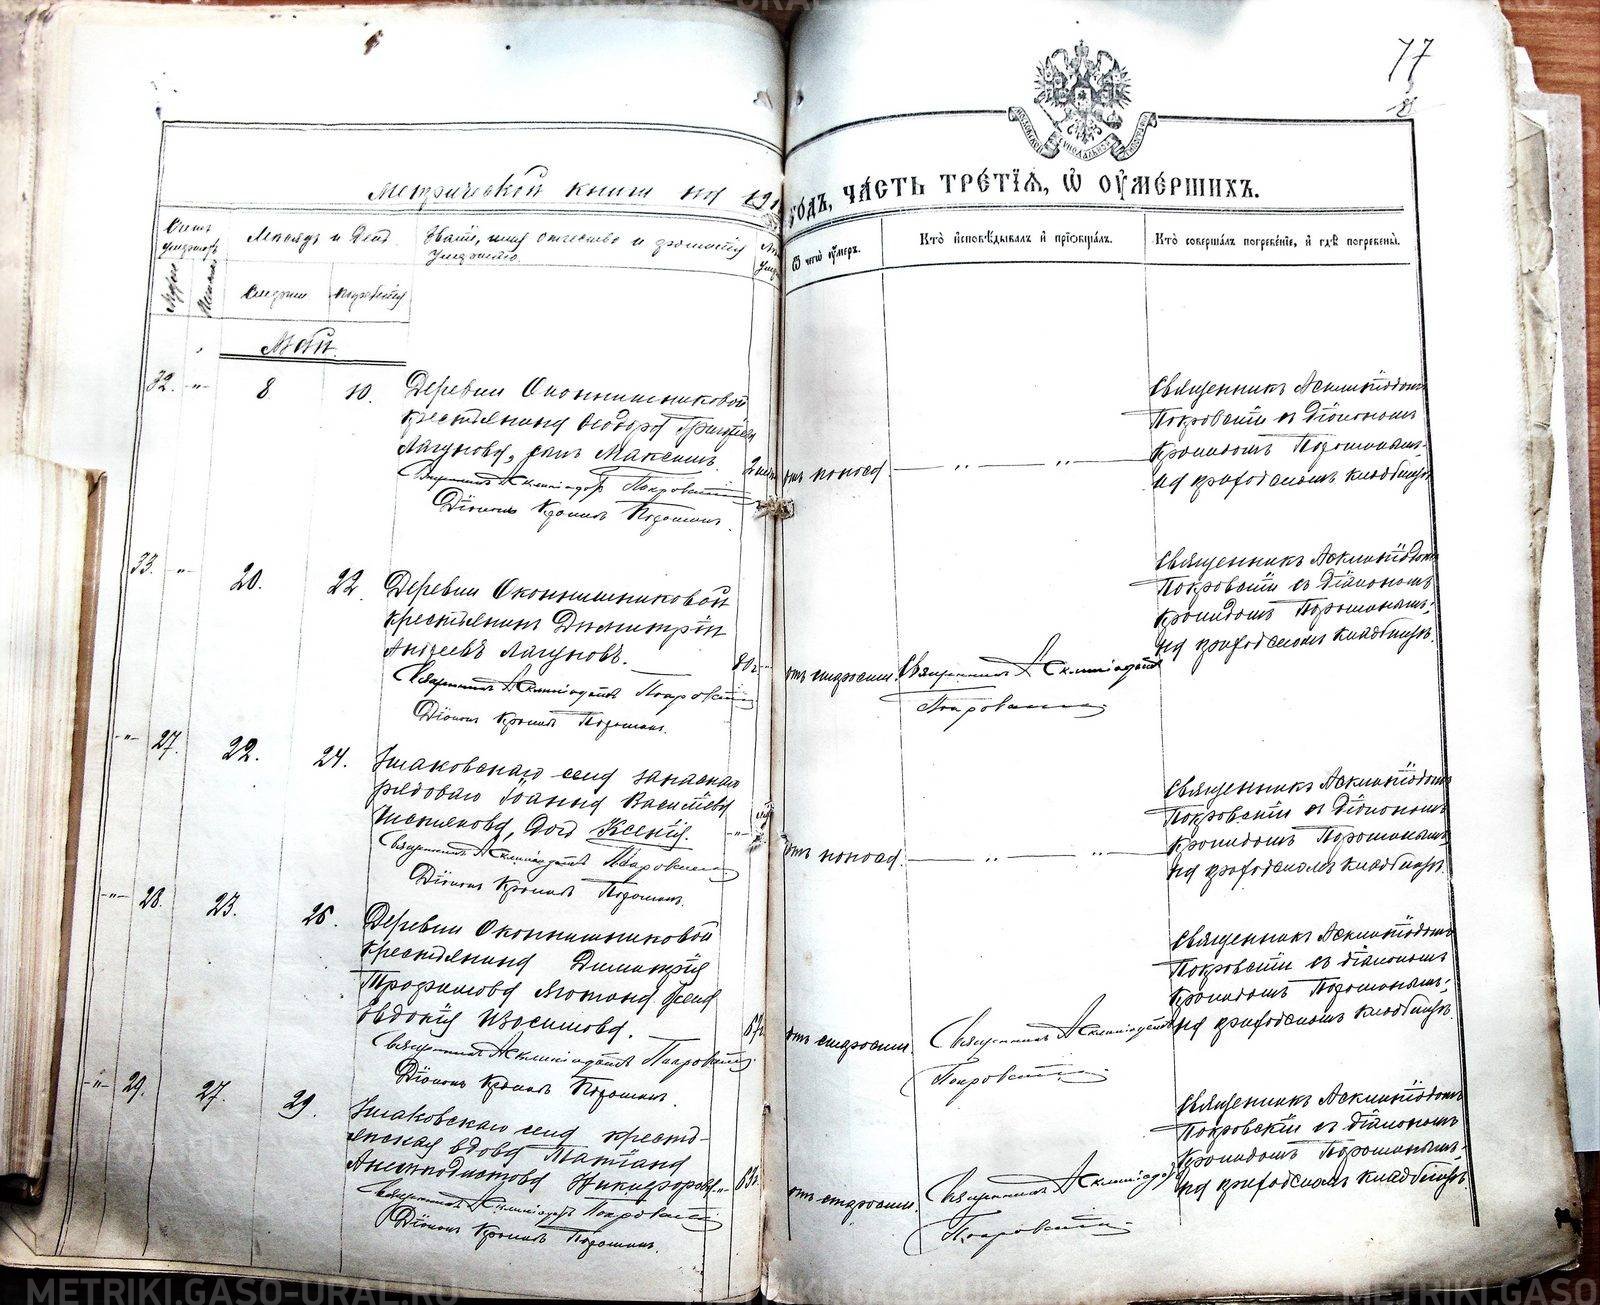 77
Метрической книги на 191
годъ, часть третія, ѿ оумершихъ.
Мѣсяцъ и день
Званіе, имя отчество и фамилія
умершаго.
Ѿ чегѡ оумеръ.
Кто исповѣдывалъ и пріобщалъ.
Кто совершалъ погребеніе, и гдѣ погребены.
смерти
погребенія
Май.
32. -"- 8 10.
Деревни Оконишниковой
крестьянина Ѳеодора Григорьева
Лагунова, сынъ Максимъ.
Священникъ Асклипіодотъ Покровскій
Діаконъ Кронидъ Порошинъ.
отъ поноса
Священникъ Асклипіодотъ
Покровскій съ діакономъ
Кронидомъ Порошинымъ,
на приходскомъ кладбищѣ.
33. -"- 20. 22.
Деревни Оконишниковой
крестьянинъ Димитрій
Андреевъ Лагуновъ.
80
Священникъ Асклипіодотъ Покровскій
Діаконъ Кронидъ Порошинъ.
отъ старости.
Священникъ Асклипіодотъ
Покровскій
Священникъ Асклипіодотъ
Покровскій съ діакономъ
Кронидомъ Порошинымъ;
на приходскомъ кладбищѣ.
-"- 27. 22. 24.
села запаснаго
рядоваго Іоанна Василіева
дочь Ксенія.
Священникъ Асклипіодотъ Покровскій
Діаконъ Кронидъ Порошинъ.
отъ поноса
Священникъ Асклипіодотъ
Покровскій съ діакономъ
Кронидомъ Порошинымъ,
на приходскомъ кладбищѣ.
-"- 28. 23. 25.
Деревни Оконишниковой
крестьянина Димитрія
Трофимова жена
Евдокія Изосимова.
Священникъ Асклипіодотъ Покровскій
Діаконъ Кронидъ Порошинъ.
отъ старости
Священникъ Асклипіодотъ
Покровскій
Священникъ Асклипіодотъ
Покровскій съ діакономъ
Кронидомъ Порошинымъ;
на приходскомъ кладбищѣ.
-"- 29. 27. 29.
села кресть-
янская вдова Татіана
Никифорова
Священникъ Асклипіодотъ Покровскій
Діаконъ Кронидъ Порошинъ.
отъ старости
Священникъ Асклипіодотъ
Покровскій
Священникъ Асклипіодотъ
Покровскій съ діакономъ
Кронидомъ Порошинымъ,
на приходскомъ кладбищѣ.
METRIKI.GASO-URAL.RU
METRIKI.GASO